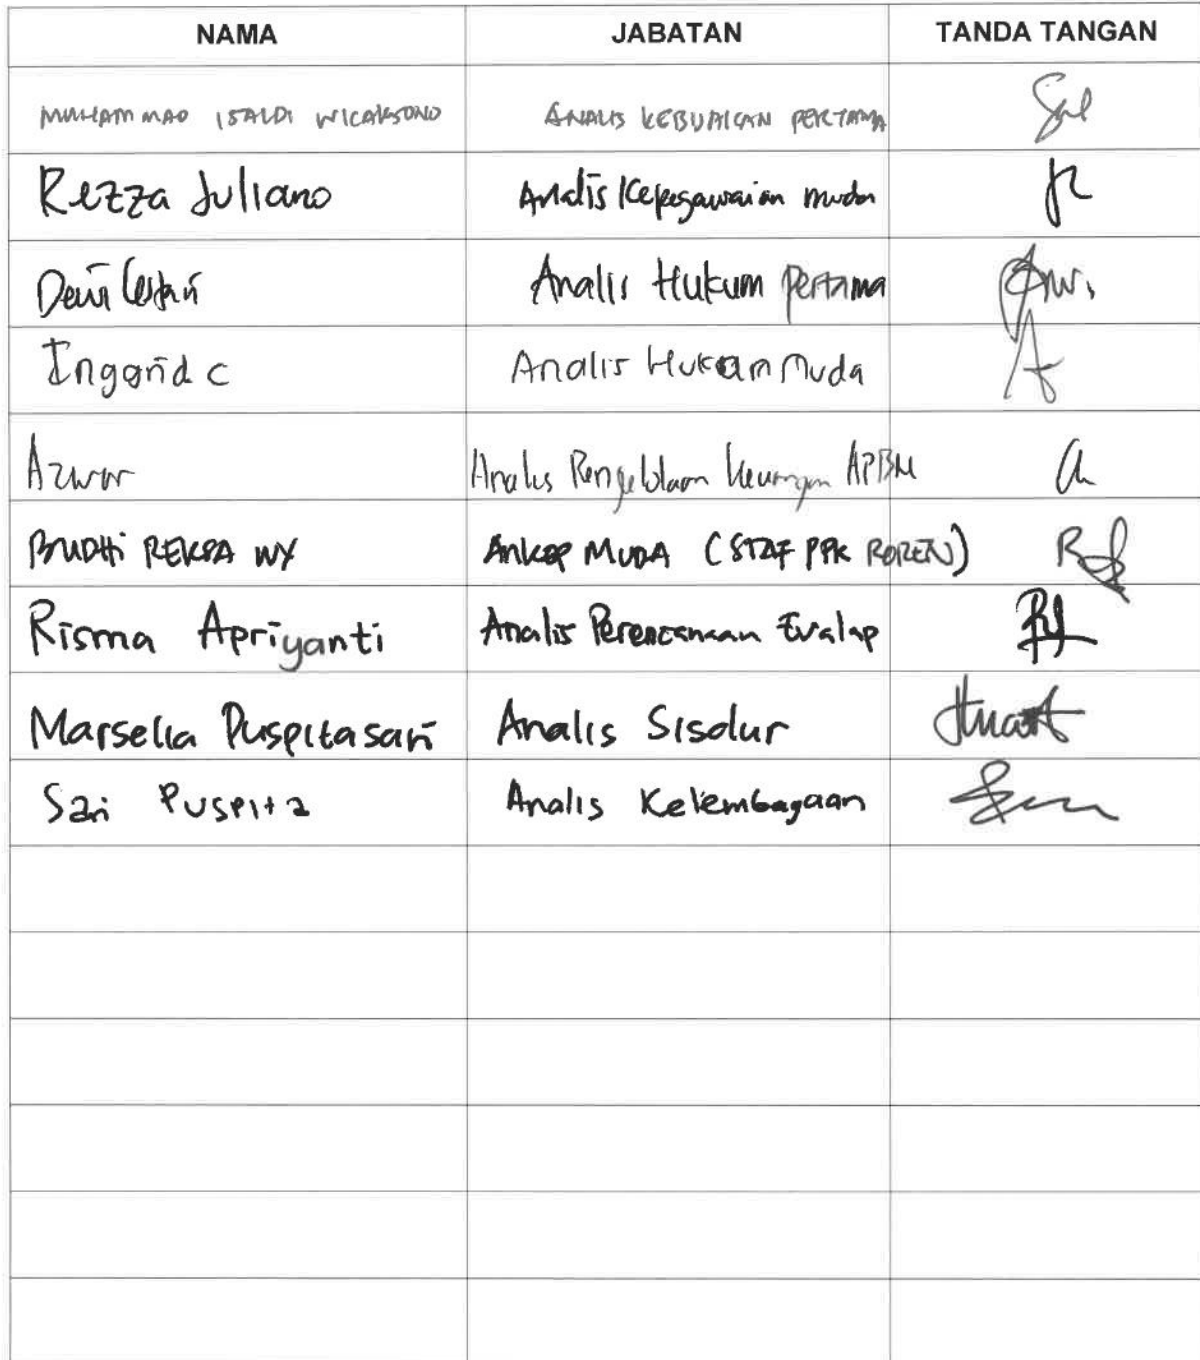 NAMA JABATAN TANDA TANGAN
MUHAMMAD ISALDI WICAKSONO ANALIS KEBIJAKAN PERTAMA
Rezza Juliano Analis Kepegawaian muda
Dewi Lestari Analis Hukum Pertama
Inggrid C Analis Hukum Muda
Azwar Analis Pengelolaan Keuangan APBN
BUDHI REKSA WY ANKEP MUDA (STAF PPK ROREN)
Risma Apriyanti Analis Perencanaan Evalap
Marselia Puspitasari Analis Sisdur
Sari Puspita Analis Kelembagaan